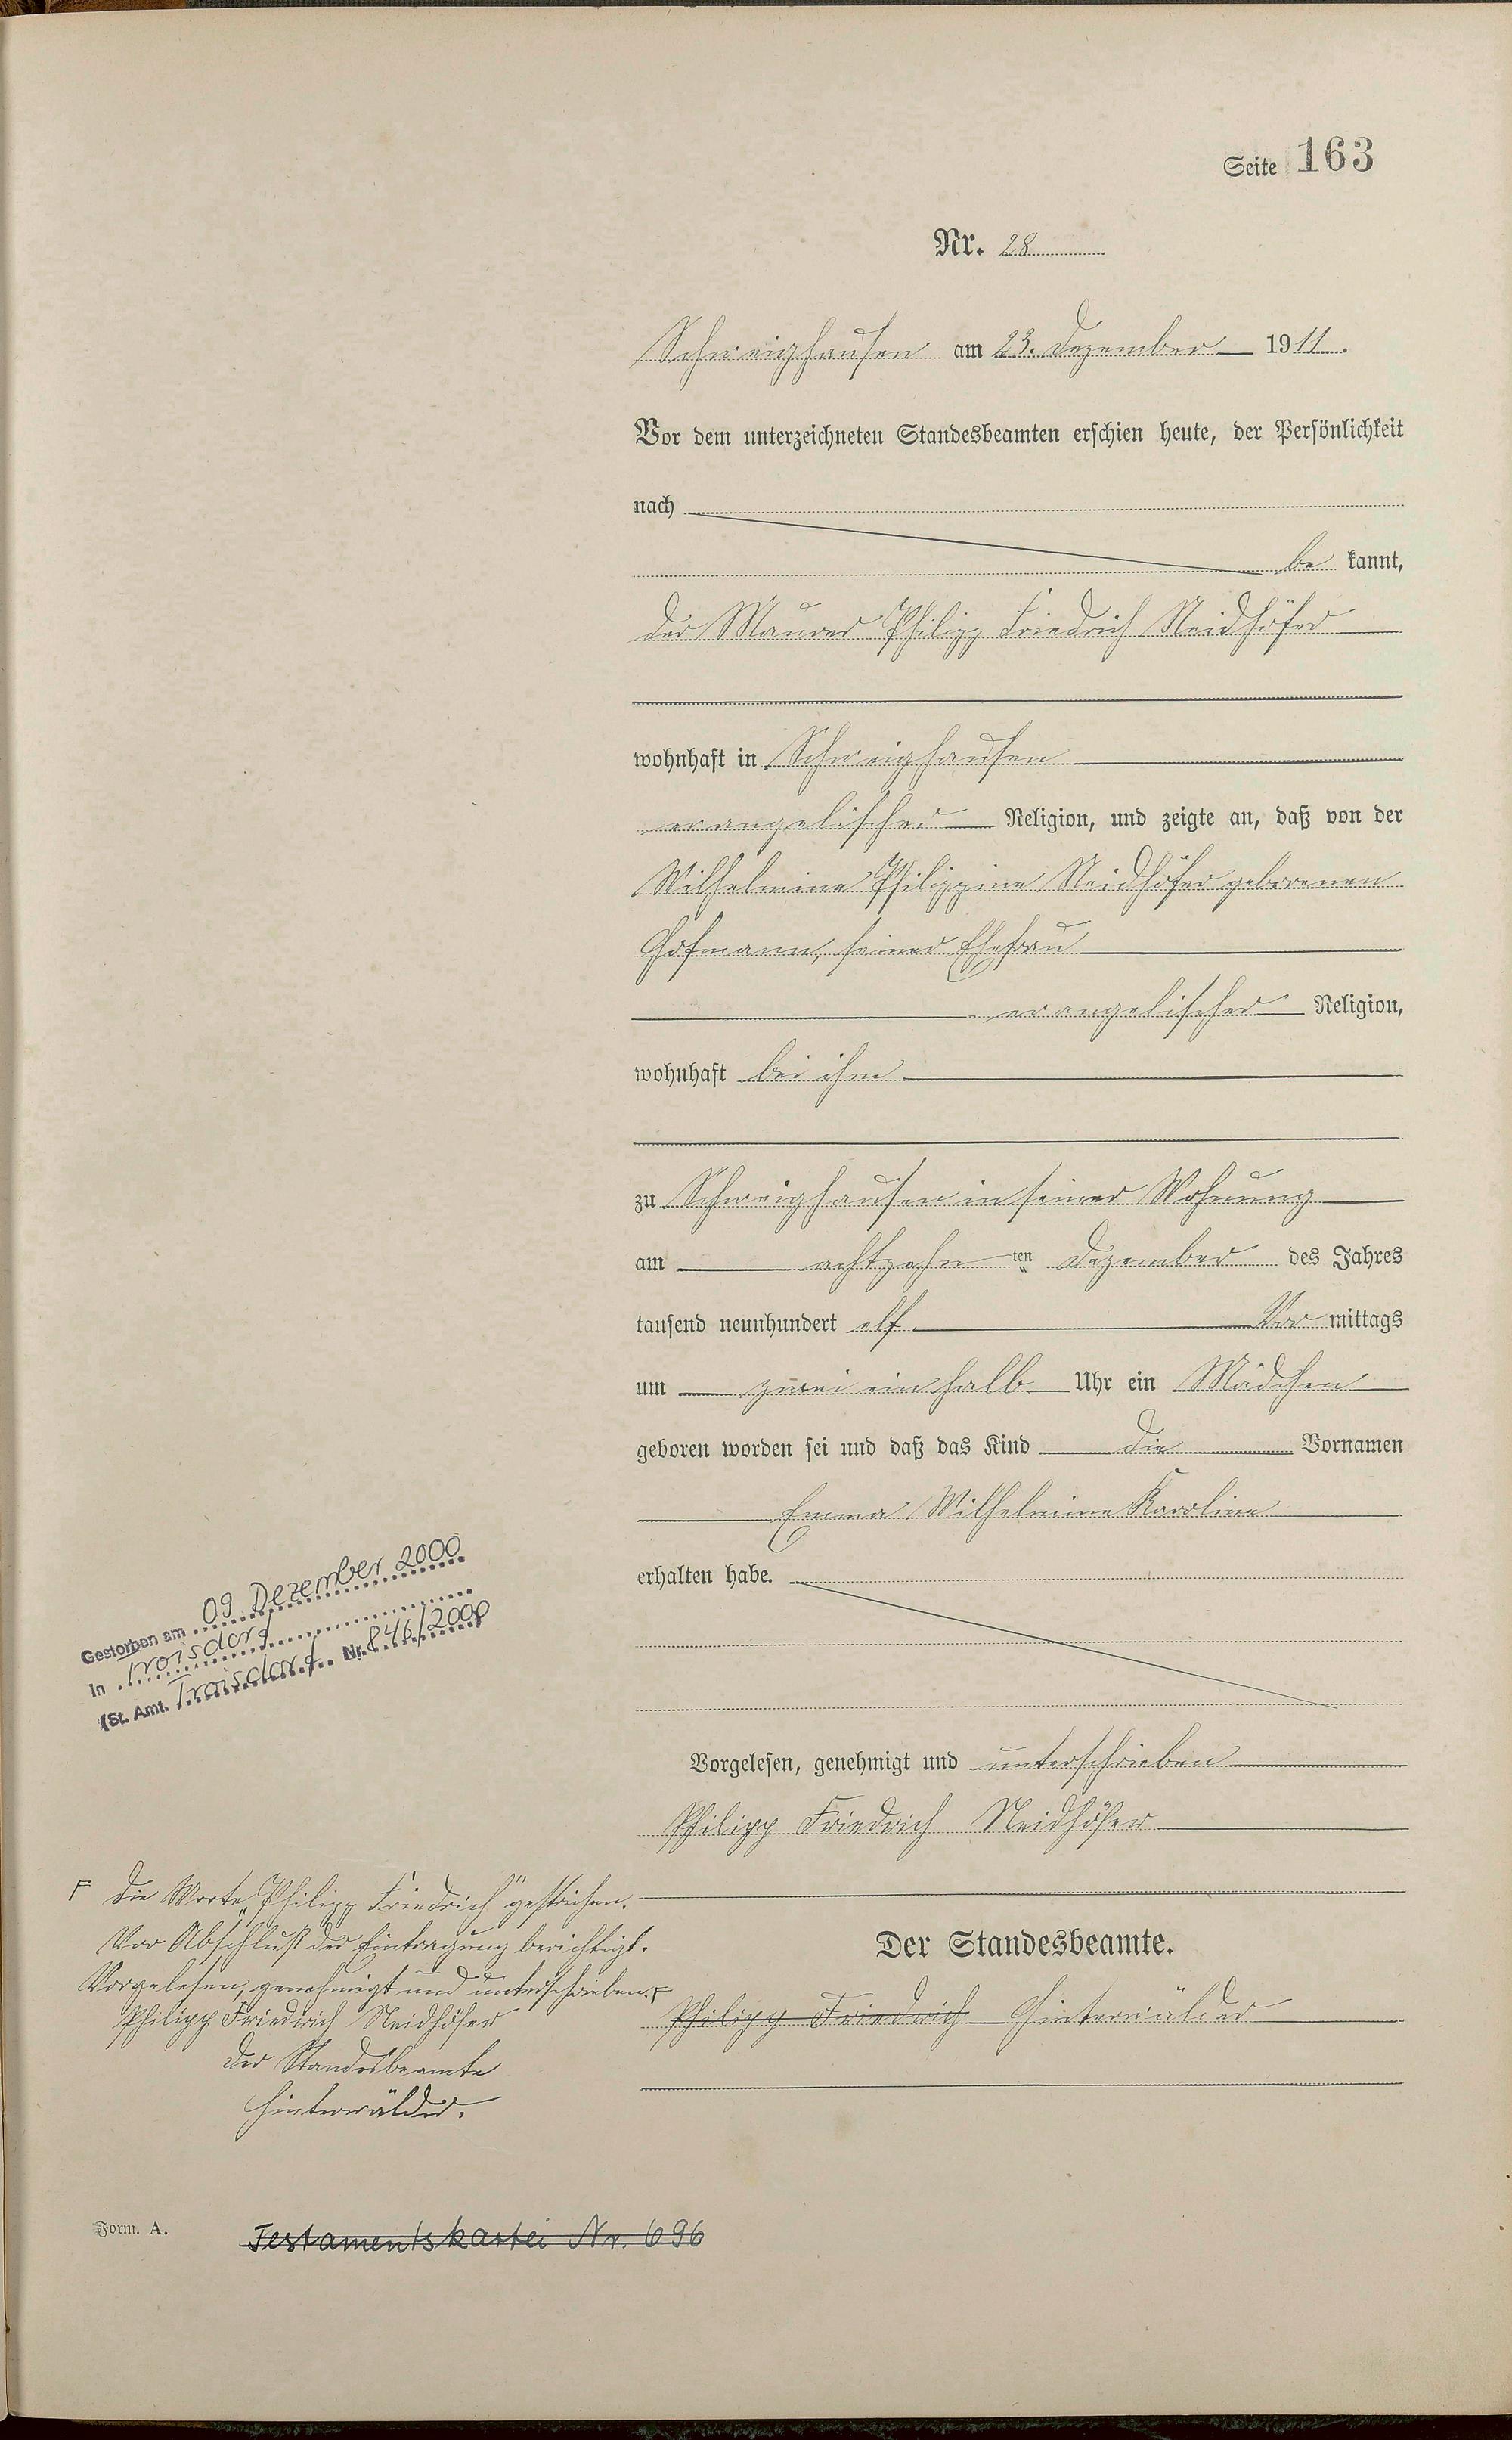 Seite 163
Nr. 28
Schweighausen am 23. Dezember 1911.
Vor dem unterzeichneten Standesbeamten erschien heute, der Persönlichkeit
nach
be kannt,
der Maurer Philipp Friedrich Neidhöfer
wohnhaft in Schweighausen
evangelischer Religion, und zeigte an, daß von der
Wilhelmine Philippine Neidhöfer geborenen
Hofmann, seiner Ehefrau
evangelischer Religion,
wohnhaft bei ihm
zu Schweighausen in seiner Wohnung
am achtzehn ten Dezember des Jahres
tausend neunhundert elf Vor mittags
um zwei ein halb Uhr ein Mädchen
geboren worden sei und daß das Kind die Vornamen
Emma Wilhelmine Karoline
erhalten habe.
Vorgelesen, genehmigt und unterschrieben
Philipp Friedrich Neidhöfer
Der Standesbeamte.
Philipp Friedrich Hinterwälder
Gestorben am 09. Dezember 2000
In Troisdorf
(St. Amt. Troisdorf Nr. 846/2000)
Die Worte „Philipp Friedrich" gestrichen.
Vor Abschluß der Eintragung berichtigt.
Vorgelesen, genehmigt und unterschrieben.
Philipp Friedrich Neidhöfer
Der Standesbeamte
Hinterwälder.
Form. A.
Testamentskartei Nr. 696